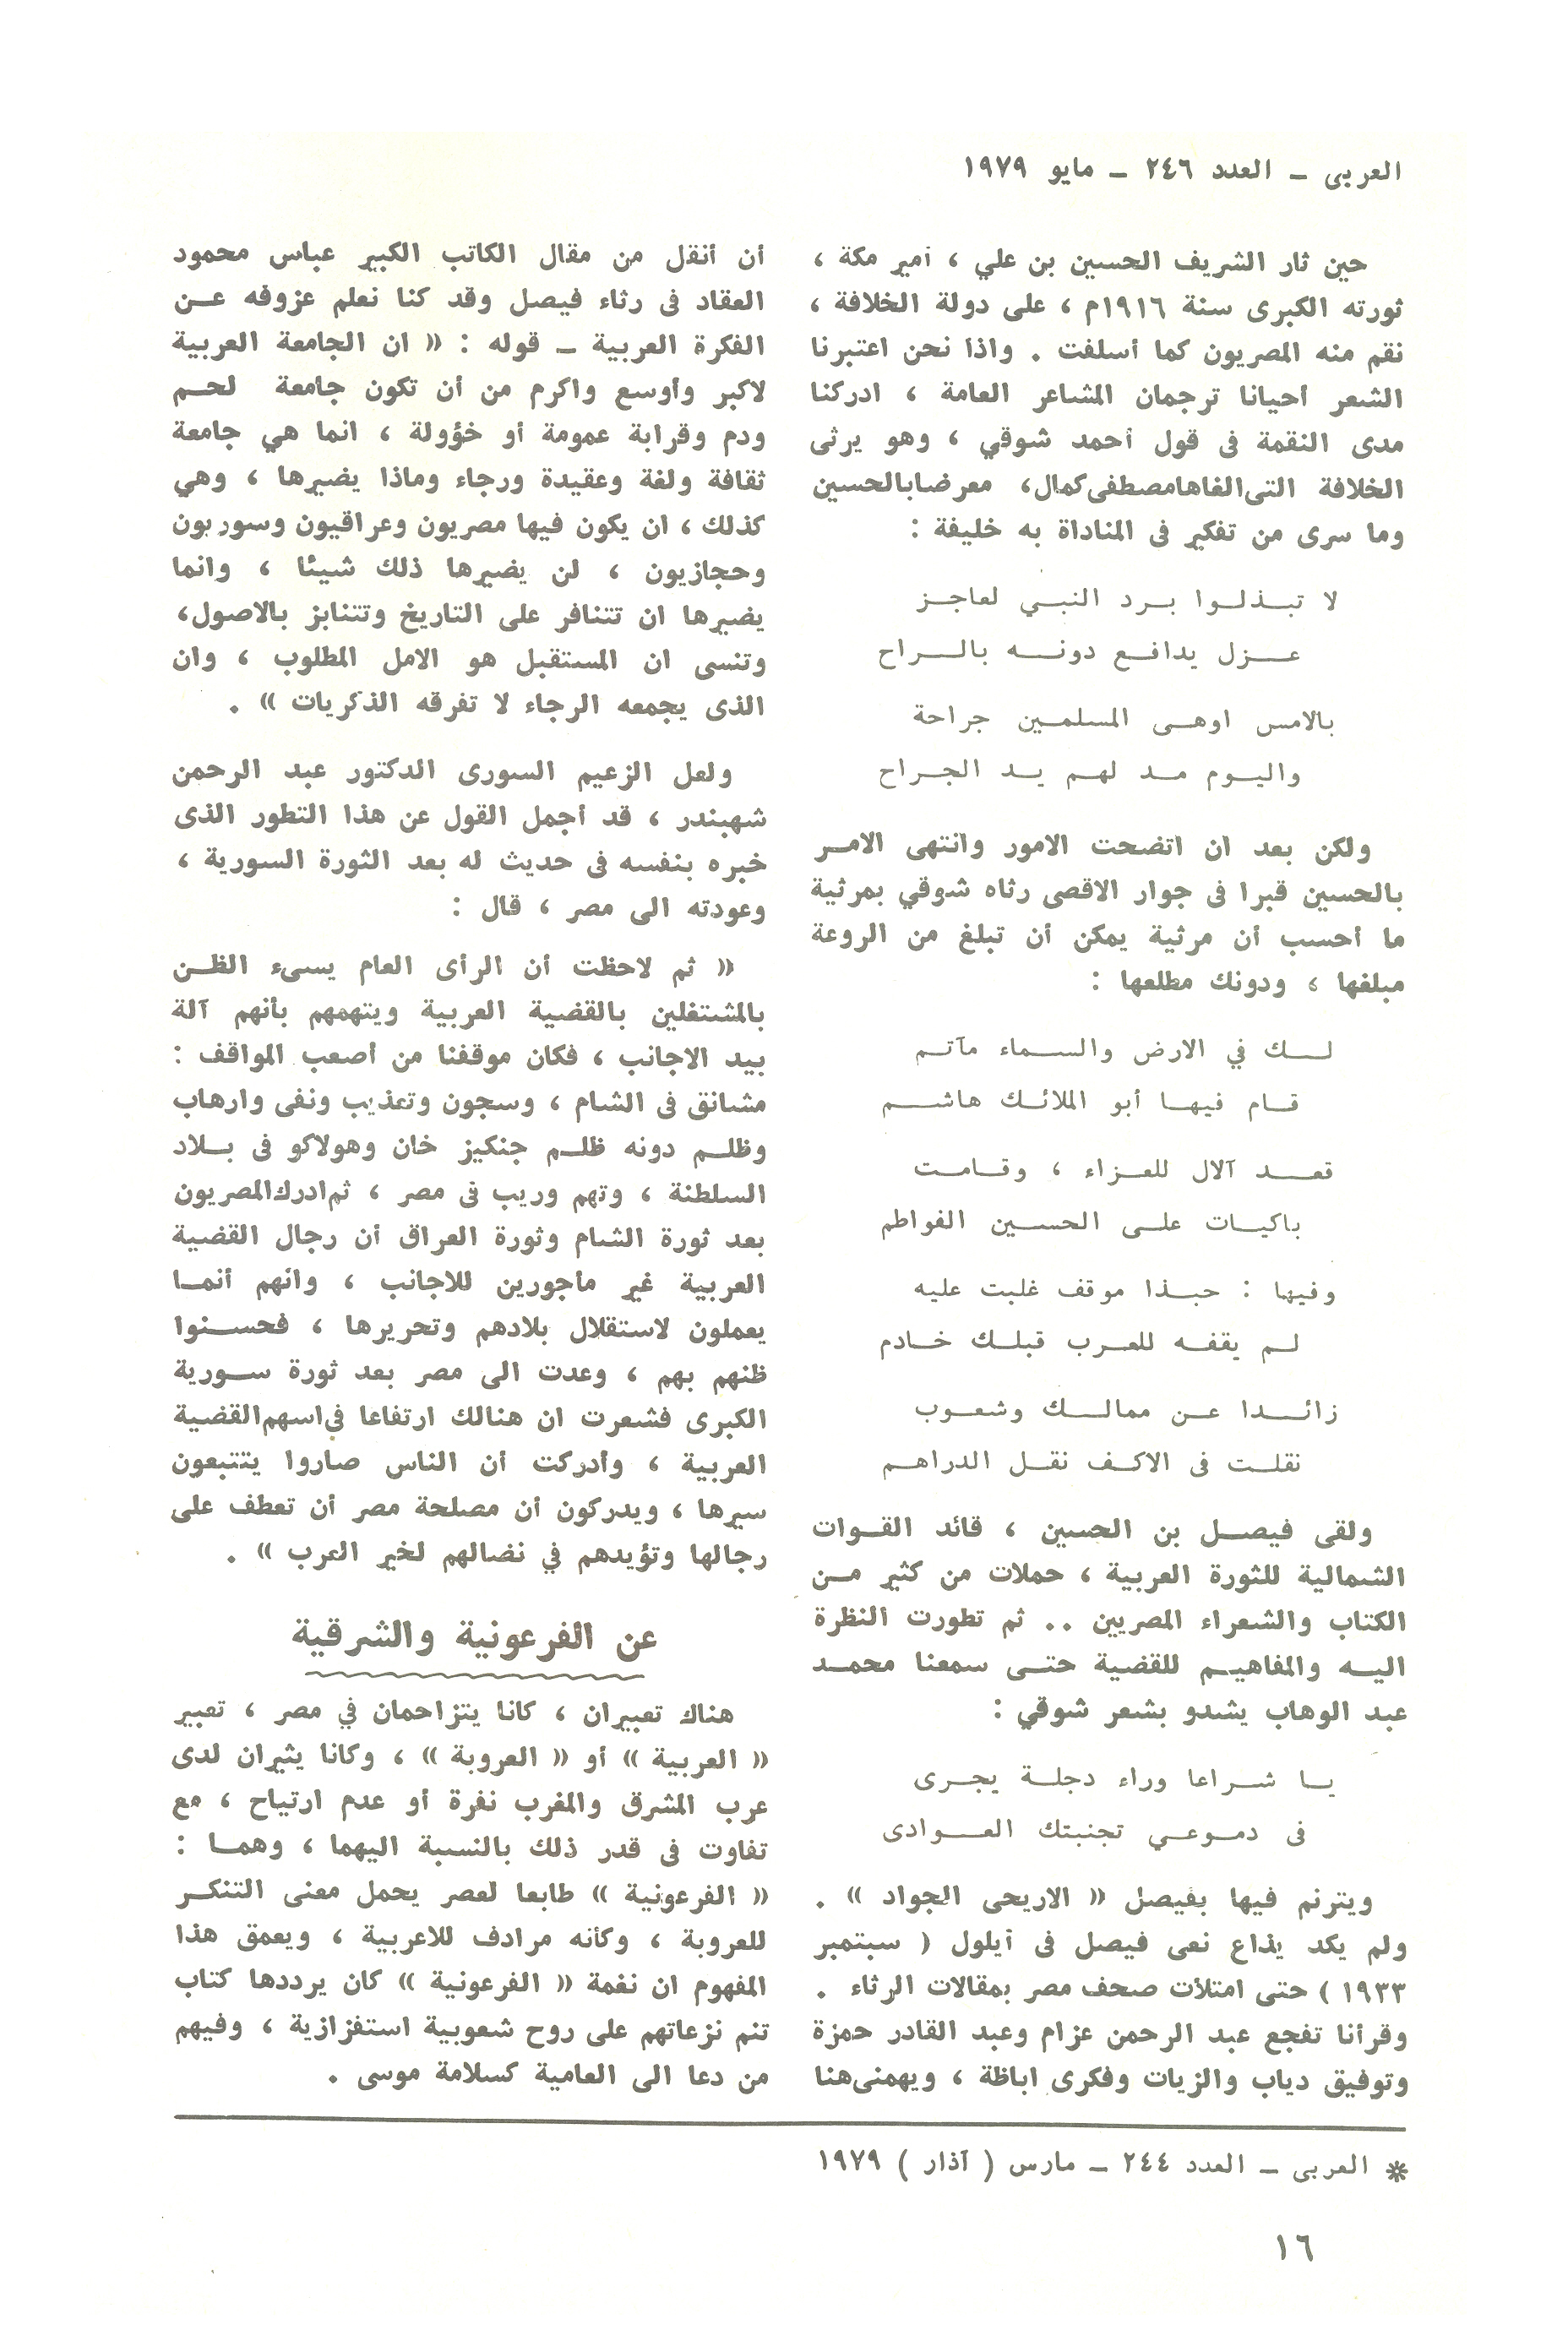 العربى ــ العدد ٢٤٦ ــ مايو ١٩٧٩
حين ثار الشريف الحسين بن علي ، أمير مكة ،
ثورته الكبرى سنة ١٩١٦م ، على دولة الخلافة ،
نقم منه المصريون كما أسلفت . واذا نحن اعتبرنا
الشعر أحيانا ترجمان المشاعر العامة ، ادركنا
مدى النقمة فى قول أحمد شوقي ، وهو يرثى
الخلافة التى الغاها مصطفى كمال، معرضا بالحسين
وما سرى من تفكير فى المناداة به خليفة :
لا تبـذلـوا بـرد النبـي لعاجـز
عــزل يدافــع دونــه بالــراح
بالامس اوهـى المسلمـين جراحة
واليـوم مـد لهـم يـد الجـراح
ولكن بعد ان اتضحت الامور وانتهى الامـر
بالحسين قبرا فى جوار الاقصى رثاه شوقي بمرثية
ما أحسب أن مرثية يمكن أن تبلغ من الروعة
مبلغها ، ودونك مطلعها :
لــك في الارض والســماء مآتـم
قـام فيهـا أبو الملائـك هاشــم
قعــد آلال للعـزاء ، وقـامـت
باكيـات علـى الحسـين الفواطم
وفيها : حبـذا موقف غلبت عليه
لـم يقفـه للعـرب قبلـك خـادم
زائــدا عـن ممالــك وشعـوب
نقلـت فى الاكـف نقـل الدراهـم
ولقى فيصـل بن الحسين ، قائد القـوات
الشمالية للثورة العربية ، حملات من كثير مـن
الكتاب والشعراء المصريين .. ثم تطورت النظرة
اليـه والمفاهيـم للقضية حتـى سمعنا محمـد
عبد الوهاب يشدو بشعر شوقي :
يــا شــراعا وراء دجلـة يجـرى
فى دمـوعـي تجنبتك العــوادى
ويترنم فيها بفيصل « الاريحى الجواد » .
ولم يكد يذاع نعى فيصل فى أيلول ( سبتمبر
١٩٣٣ ) حتى امتلأت صحف مصر بمقالات الرثاء .
وقرأنا تفجع عبد الرحمن عزام وعبد القادر حمزة
وتوفيق دياب والزيات وفكرى اباظة ، ويهمنى هنا
أن أنقل من مقال الكاتب الكبير عباس محمود
العقاد فى رثاء فيصل وقد كنا نعلم عزوفه عـن
الفكرة العربية ــ قوله : « ان الجامعة العربية
لاكبر وأوسع واكرم من أن تكون جامعة لحـم
ودم وقرابة عمومة أو خؤولة ، انما هي جامعة
ثقافة ولغة وعقيدة ورجاء وماذا يضيرها ، وهي
كذلك ، ان يكون فيها مصريون وعراقيون وسوريون
وحجازيون ، لن يضيرها ذلك شيئا ، وانما
يضيرها ان تتنافر على التاريخ وتتنابز بالاصول،
وتنسى ان المستقبل هو الامل المطلوب ، وان
الذى يجمعه الرجاء لا تفرقه الذكريات » .
ولعل الزعيم السورى الدكتور عبد الرحمن
شهبندر ، قد أجمل القول عن هذا التطور الذى
خبره بنفسه فى حديث له بعد الثورة السورية ،
وعودته الى مصر ، قال :
« ثم لاحظت أن الرأى العام يسىء الظـن
بالمشتغلين بالقضية العربية ويتهمهم بأنهم آلة
بيد الاجانب ، فكان موقفنا من أصعب المواقف :
مشانق فى الشام ، وسجون وتعذيب ونفى وارهاب
وظلـم دونه ظلـم جنكيز خان وهولاكو فى بـلاد
السلطنة ، وتهم وريب فى مصر ، ثم ادرك المصريون
بعد ثورة الشام وثورة العراق أن رجال القضية
العربية غير مأجورين للاجانب ، وانهم أنمـا
يعملون لاستقلال بلادهم وتحريرها ، فحسـنوا
ظنهم بهم ، وعدت الى مصر بعد ثورة سـورية
الكبرى فشعرت ان هنالك ارتفاعا في اسهم القضية
العربية ، وأدركت أن الناس صاروا يتتبعون
سيرها ، ويدركون أن مصلحة مصر أن تعطف على
رجالها وتؤيدهم في نضالهم لخير العرب » .
عن الفرعونية والشرقية
هناك تعبيران ، كانا يتزاحمان في مصر ، تعبير
« العربية » أو « العروبة » ، وكانا يثيران لدى
عرب المشرق والمغرب نفرة أو عدم ارتياح ، مع
تفاوت فى قدر ذلك بالنسبة اليهما ، وهمـا :
« الفرعونية » طابعا لعصر يحمل معنى التنكـر
للعروبة ، وكأنه مرادف للاعربية ، ويعمق هذا
المفهوم ان نغمة « الفرعونية » كان يرددها كتاب
تنم نزعاتهم على روح شعوبية استفزازية ، وفيهم
من دعا الى العامية كسلامة موسى .
* العربى ــ العدد ٢٤٤ ــ مارس ( آذار ) ١٩٧٩
١٦